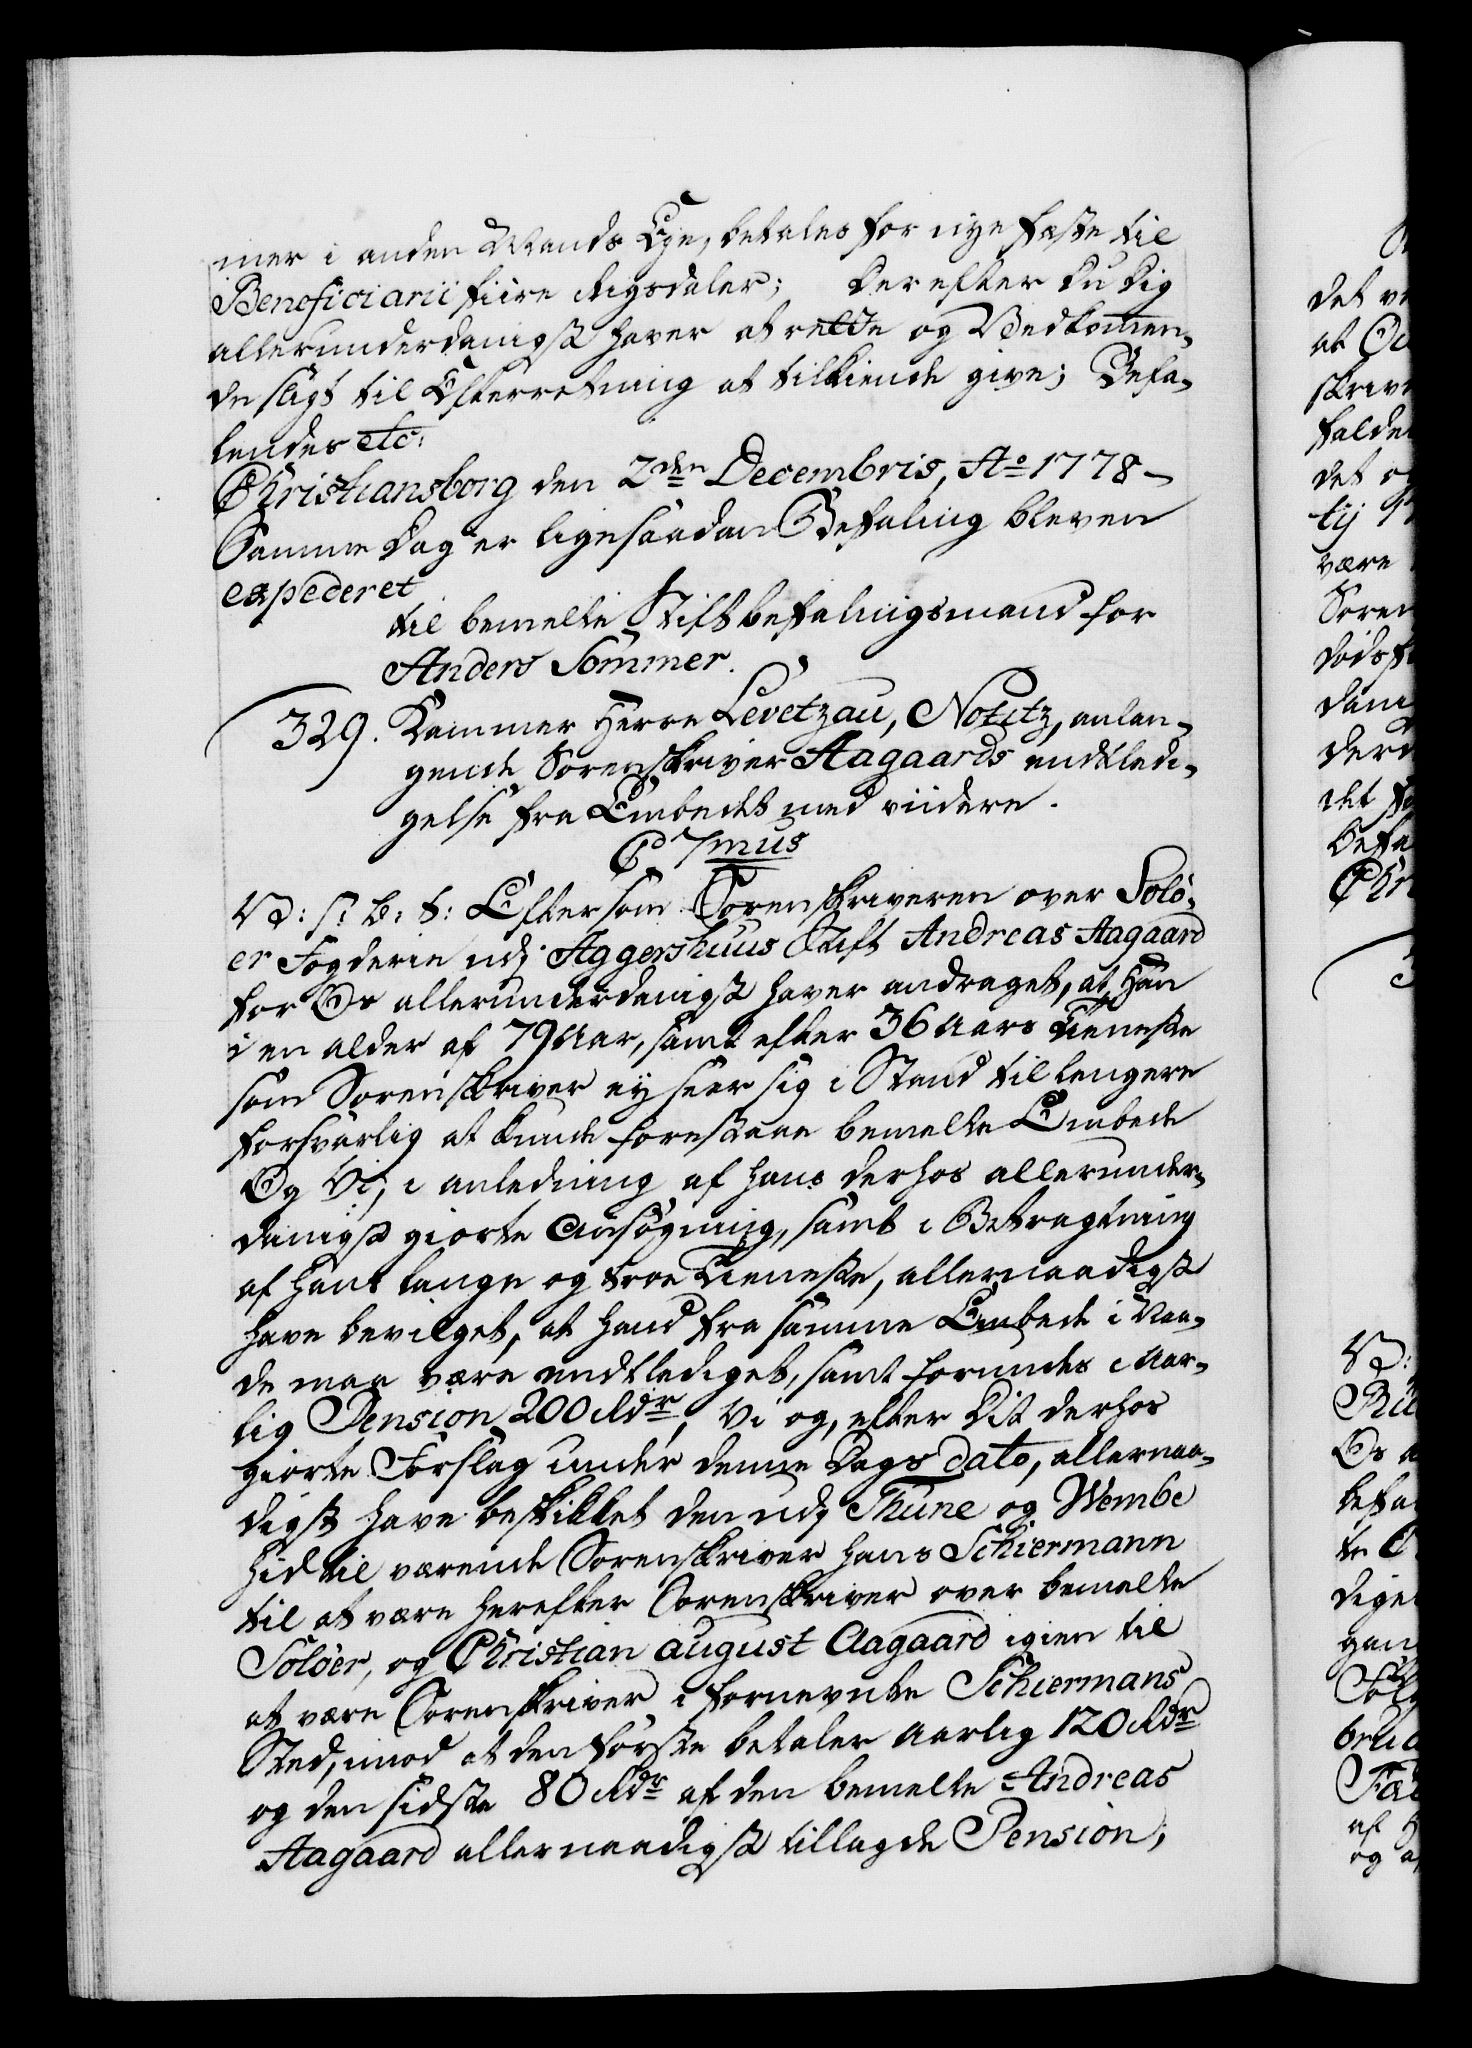 mer i anden Mands Eje, betales for nye fæste til
Beneficiarii fiire Rigsdaler; Derefter Du Dig
allerunderdanigst haver at rette og Vedkommen-
de sligt til Efterretning at tilkiende give; Befa-
lendes etc:
Christiansborg den 2den Decembris, Ao 1778-
Samme Dag er ligesaadan Befaling bleven
expederet
til bemelte Stiftbefalingsmand for
Anders Sommer.
329. Kammer Herre Levetzau, Notitz, anlan-
gende Sorenskriver Aagaards endtledi-
gelse fra Embedet med viidere.
C 7mus
V: s: b: t: Eftersom Sorenskriveren over Solö-
er Fogderie udj Aggershuus Stift Andreas Aagaard
for Os allerunderdanigst haver andraget, at Han
i en alder af 79 Aar, samt efter 36 Aars Tieneste
som Sorenskriver ey seer sig i Stand til lengere
forsvarlig at kunde forestaae bemelte Embede
Og Vi, i anledning af hans derhos allerunder-
danigst giorte Ansögning, samt i Betragtning
af hans lange og troe Tieneste, allernaadigst
have bevilget, at hand fra samme Embede i Naa-
de maa være endtlediget, samt forundes i Aar-
lig Pension 200 Rdr, Vi og, efter Dit derhos
giorte Forslag under denne Dags dato, allernaa-
digst have beskikket den udj Thune og Wembe
hid til værende Sorenskriver Hans Schiermann
til at være herefter Sorenskriver over bemelte
Solöer, og Christian August Aagaard igien til
at være Sorenskriver i fornevnte Schiermans
Sted, imod at den förste betaler Aarlig 120 Rdr
og den sidste 80 Rdr af den bemelte Andreas
Aagaard allernaadigst tillagde Pension;